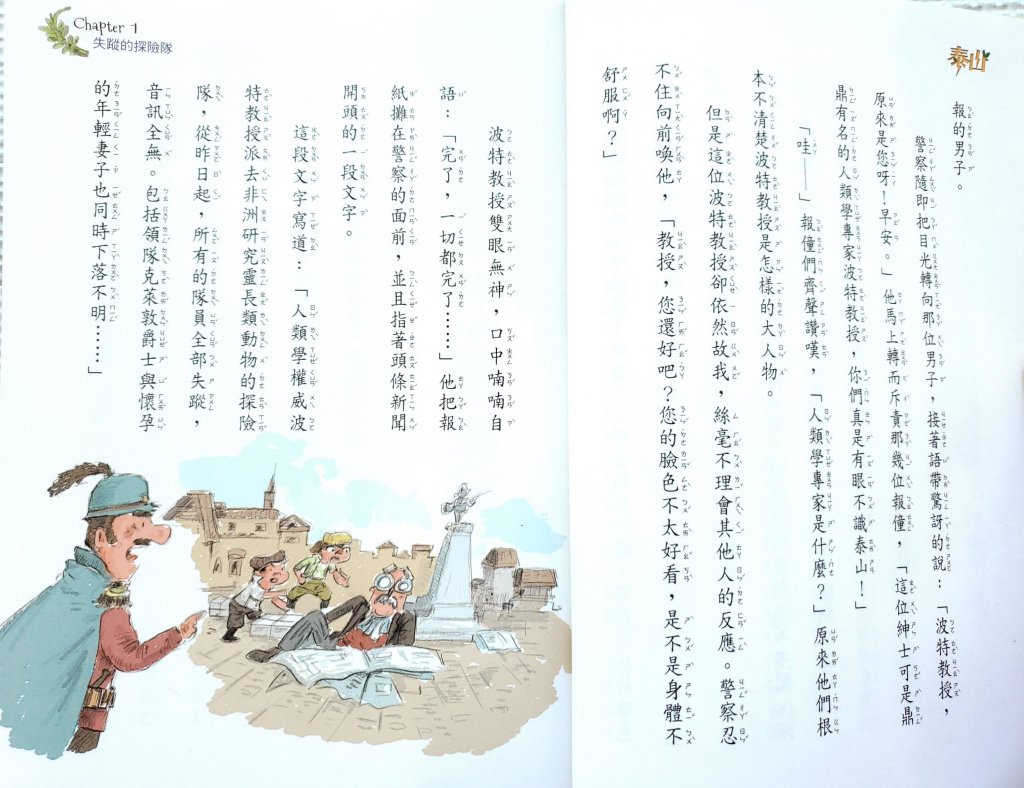 泰山
報的男子。
警察隨即把目光轉向那位男子，接著語帶驚訝的說：「波特教授，
原來是您呀！早安。」他馬上轉而斥責那幾位報僮，「這位紳士可是鼎
鼎有名的人類學專家波特教授，你們真是有眼不識泰山！」
「哇——」報僮們齊聲讚嘆，「人類學專家是什麼？」原來他們根
本不清楚波特教授是怎樣的大人物。
但是這位波特教授卻依然故我，絲毫不理會其他人的反應。警察忍
不住向前喚他，「教授，您還好吧？您的臉色不太好看，是不是身體不
舒服啊？」
Chapter 1
失蹤的探險隊
波特教授雙眼無神，口中喃喃自
語：「完了，一切都完了……」他把報
紙攤在警察的面前，並且指著頭條新聞
開頭的一段文字。
這段文字寫道：「人類學權威波
特教授派去非洲研究靈長類動物的探險
隊，從昨日起，所有的隊員全部失蹤，
音訊全無。包括領隊克來敦爵士與懷孕
的年輕妻子也同時下落不明……」